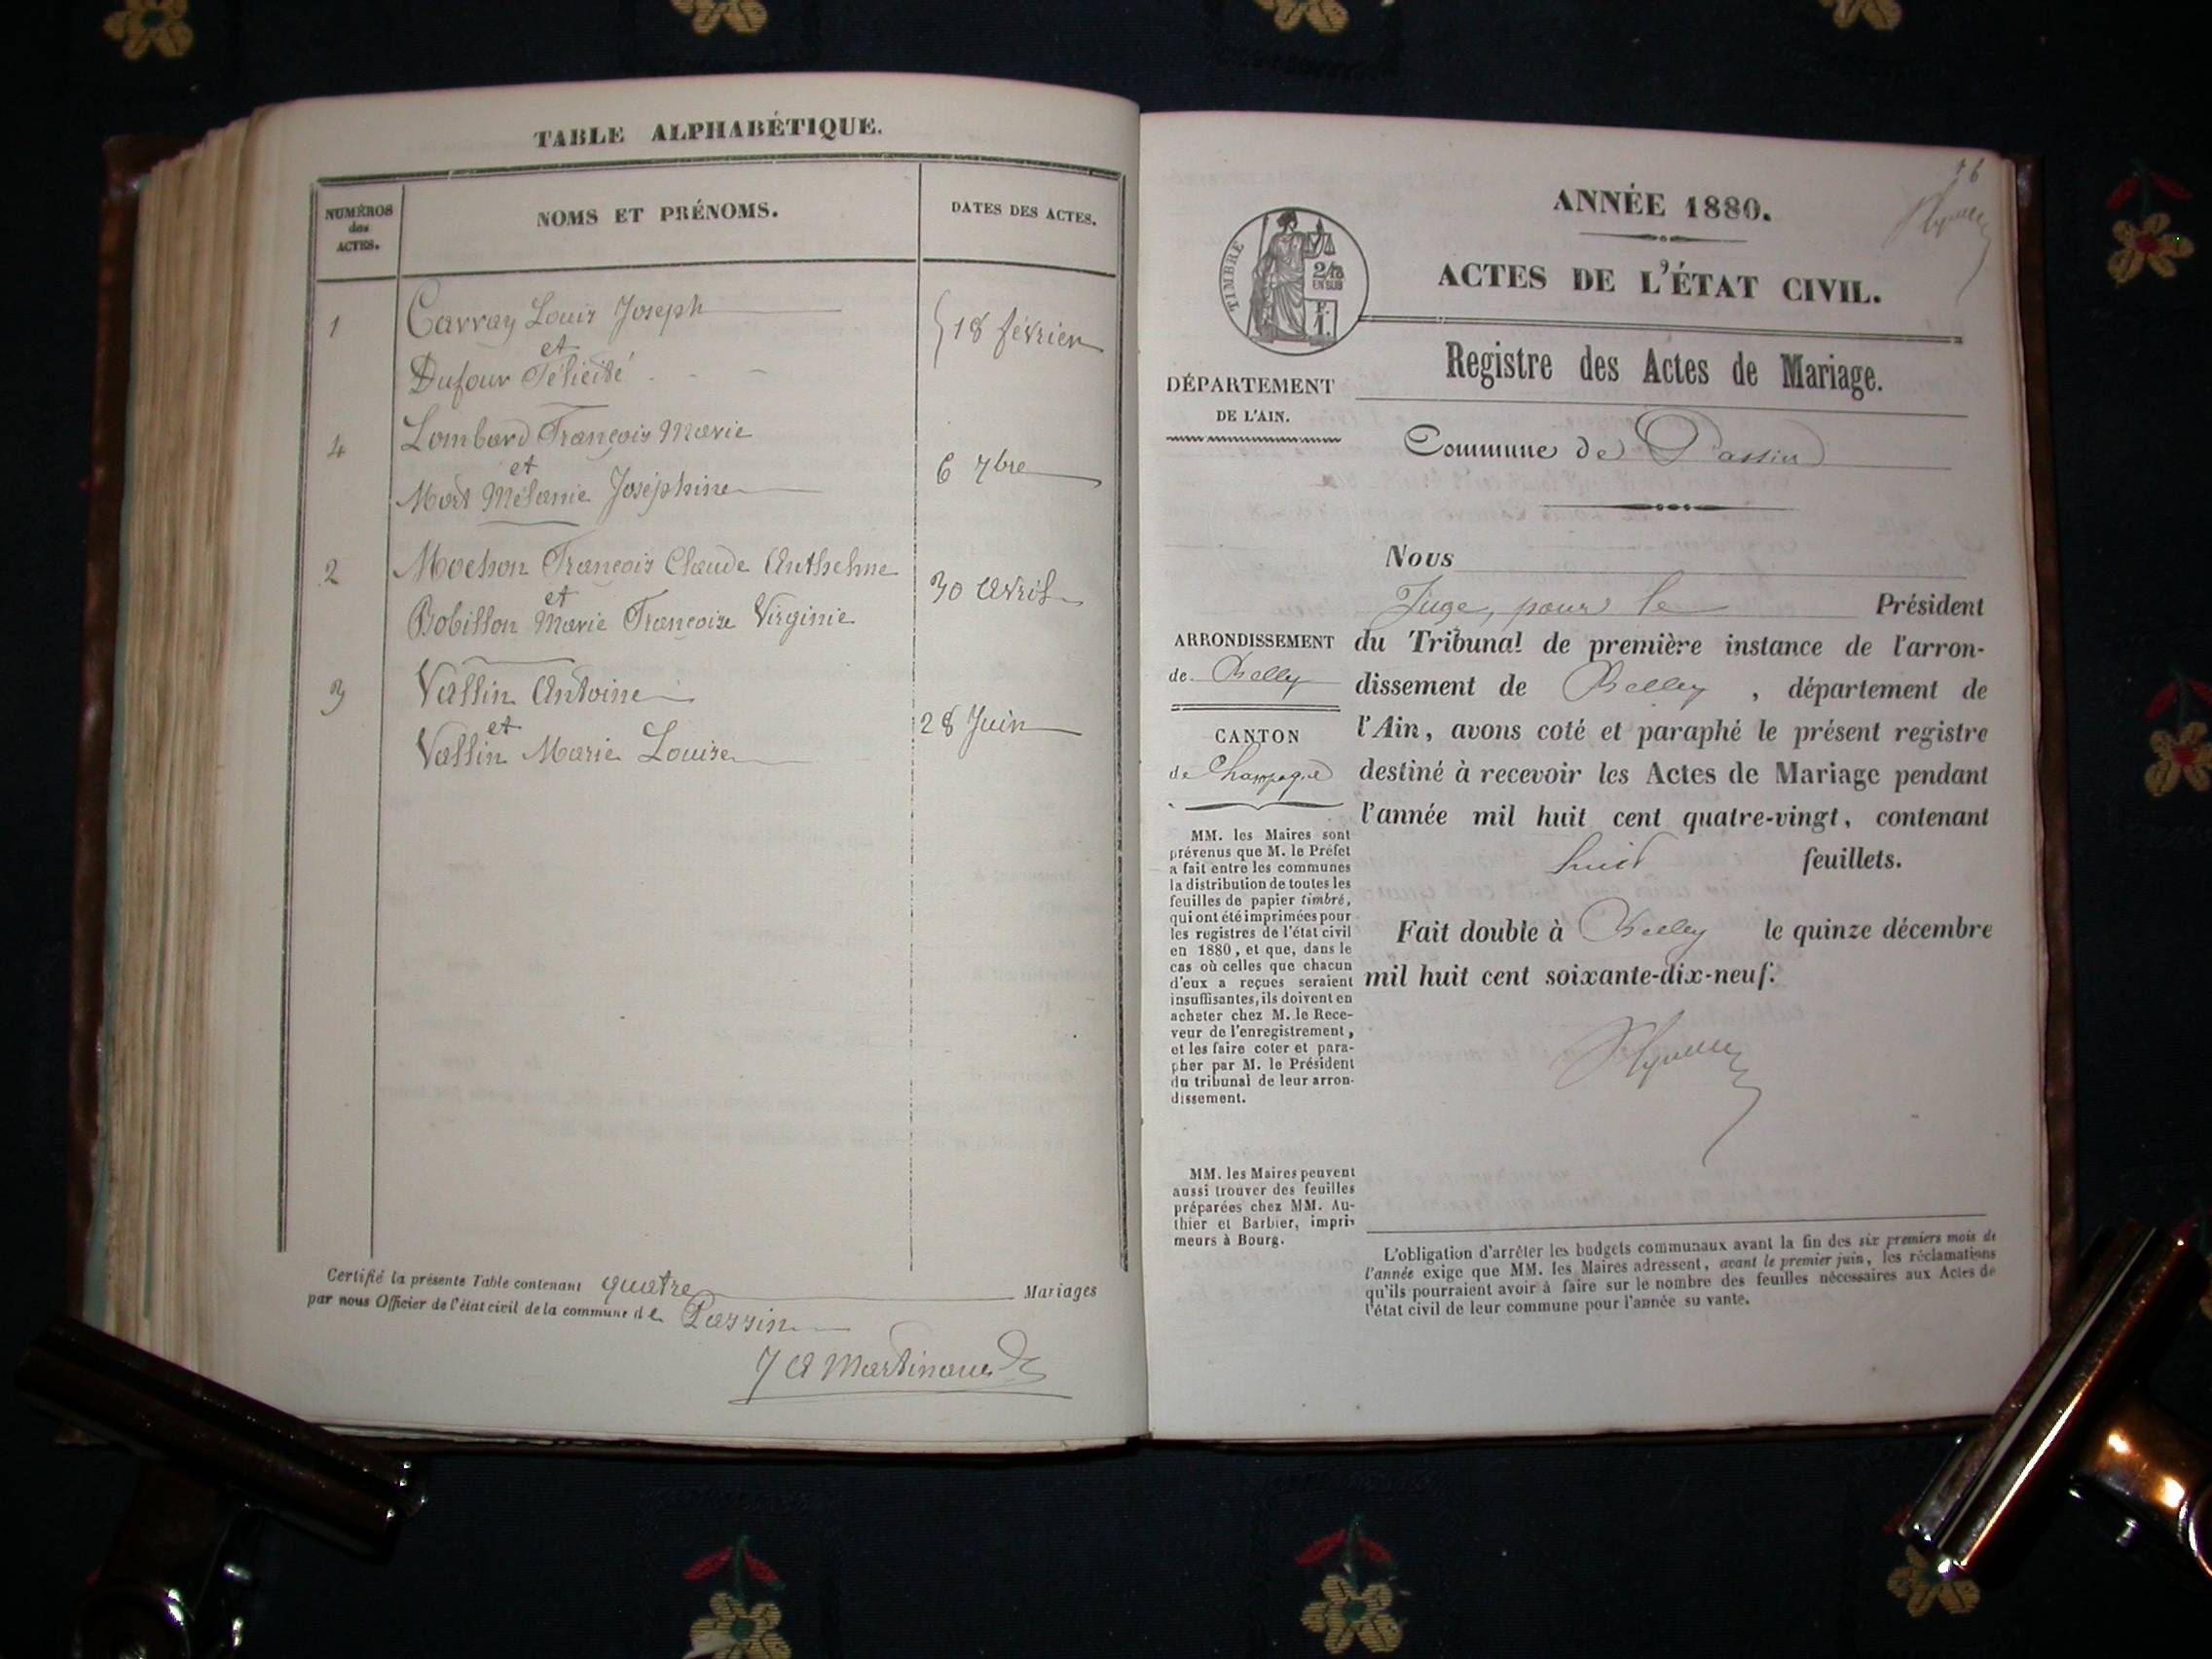 TABLE ALPHABÉTIQUE.
NUMÉROS
des
ACTES.
NOMS ET PRÉNOMS.
DATES DES ACTES.
1
Carray Louis Joseph
et
Dufour Félicité
18 février
4
Lombard François Marie
et
Mort Mélanie Joséphine
6 7bre
2
Mochon François Claude Anthelme
et
Bobillon Marie Françoise Virginie
30 Avril
3
Vallin Antoine
et
Vallin Marie Louise
28 Juin
Certifié la présente Table contenant quatre Mariages
par nous Officier de l'état civil de la commune de Passin
Martinaud
76
ANNÉE 1880.
ACTES DE L'ÉTAT CIVIL.
TIMBRE
2/10
EN SUS
F.
1.
Registre des Actes de Mariage.
DÉPARTEMENT
DE L'AIN.
Commune de Passin
Nous
Juge, pour le Président
ARRONDISSEMENT
de Belley
CANTON
de Champagne
du Tribunal de première instance de l'arron-
dissement de Belley, département de
l'Ain, avons coté et paraphé le présent registre
destiné à recevoir les Actes de Mariage pendant
l'année mil huit cent quatre-vingt, contenant
huit feuillets.
Fait double à Belley le quinze décembre
mil huit cent soixante-dix-neuf.
MM. les Maires sont
prévenus que M. le Préfet
a fait entre les communes
la distribution de toutes les
feuilles de papier timbré,
qui ont été imprimées pour
les registres de l'état civil
en 1880, et que, dans le
cas où celles que chacun
d'eux a reçues seraient
insuffisantes, ils doivent en
acheter chez M. le Rece-
veur de l'enregistrement,
et les faire coter et para-
pher par M. le Président
du tribunal de leur arron-
dissement.
MM. les Maires peuvent
aussi trouver des feuilles
préparées chez MM. Au-
thier et Barbier, impri-
meurs à Bourg.
L'obligation d'arrêter les budgets communaux avant la fin des six premiers mois de
l'année exige que MM. les Maires adressent, avant le premier juin, les réclamations
qu'ils pourraient avoir à faire sur le nombre des feuilles nécessaires aux Actes de
l'état civil de leur commune pour l'année su vante.